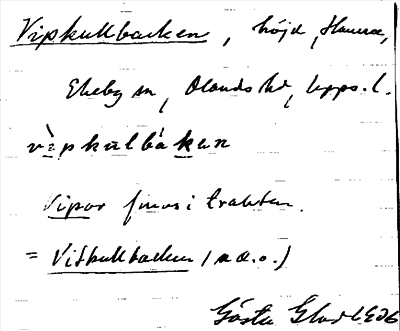 Vipkullbacken, höjd, Hamra,
Ekeby sn, Olands hd, Upps. l.
vìpkulbákan
Vipor finns i trakten.
= Vitkullbacken (s.d.o.)
Gösta Glad 1926